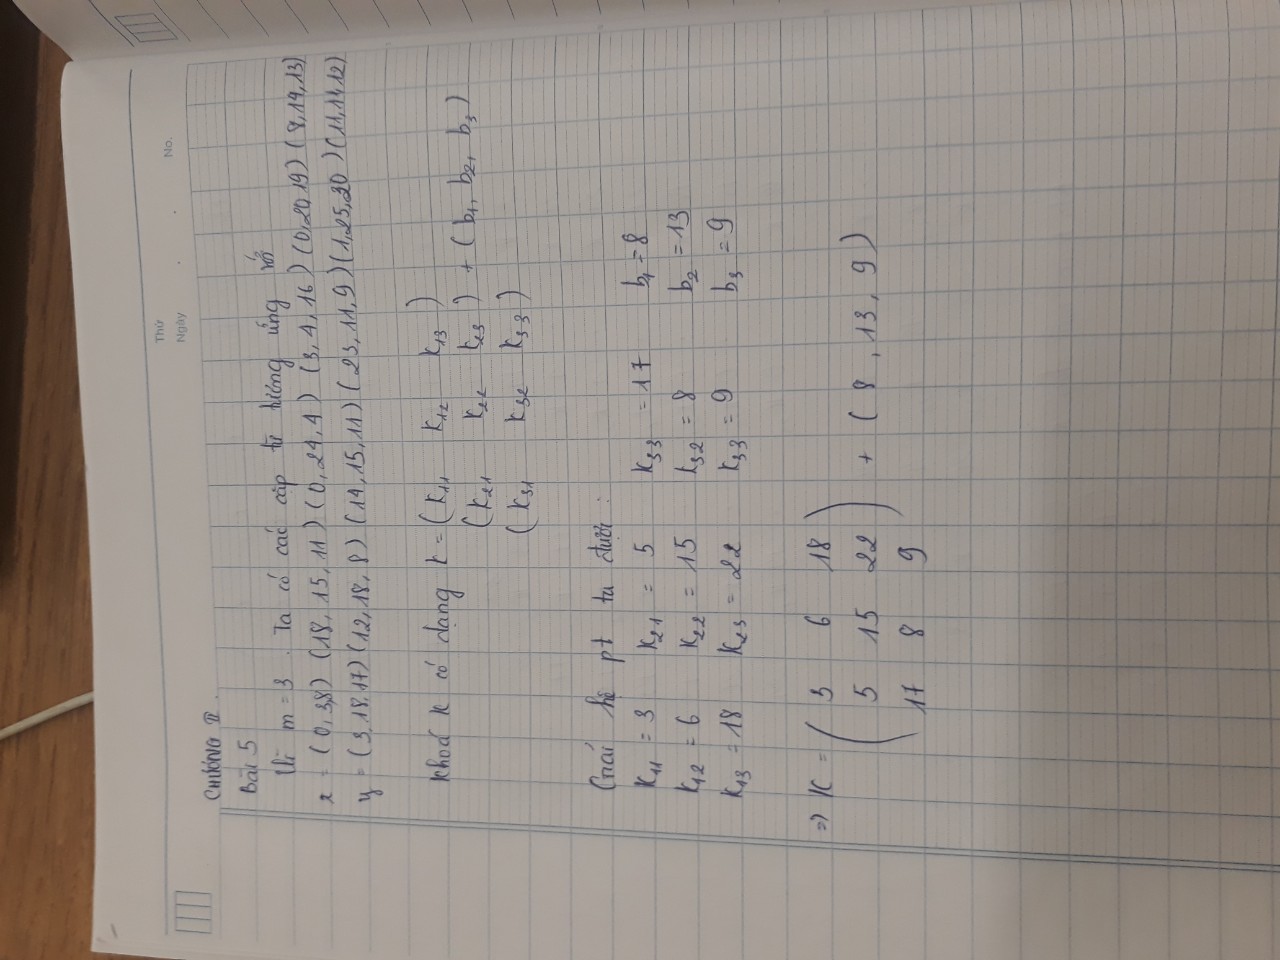 Thứ
Ngày . . No.
CHƯƠNG II.
Bài 5
Vì m = 3. Ta có các cặp từ tương ứng rõ
x = (0, 3, 8) (18, 15, 11) (0, 24, 4) (3, 4, 16) (0, 20, 19) (8, 14, 13)
y = (3, 18, 17) (12, 18, 8) (14, 15, 11) (23, 11, 9) (1, 25, 20) (11, 11, 12)
Khoá K có dạng K = (K11 K12 K13)
(K21 K22 K23) + (b1, b2, b3)
(K31 K32 K33)
Giải hệ pt ta được:
K11 = 3 K21 = 5 K33 = 17 b1 = 8
K12 = 6 K22 = 15 K32 = 8 b2 = 13
K13 = 18 K23 = 22 K33 = 9 b3 = 9
=> K = ( 3 6 18 )
5 15 22 + (8, 13, 9)
17 8 9